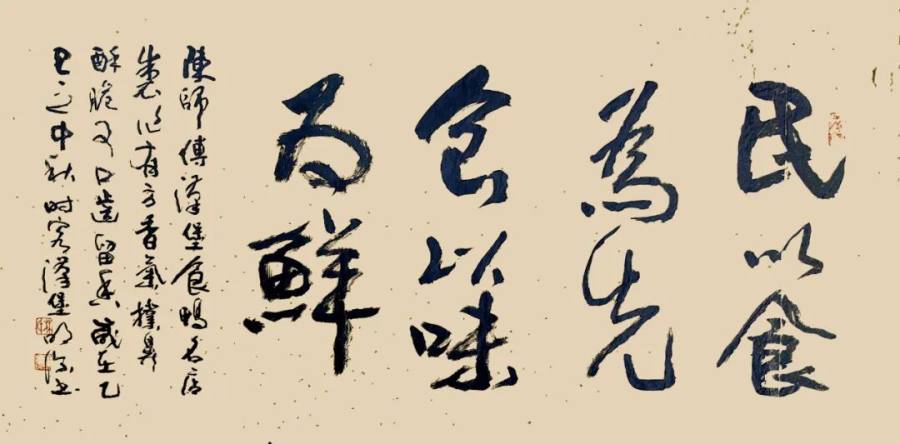 民以食
為先
食以味
为鮮
陳師傅漢堡食鴨名店
製作有方香氣撲鼻
酥脆可口齒留香歲在乙
巳之中秋时客漢堡